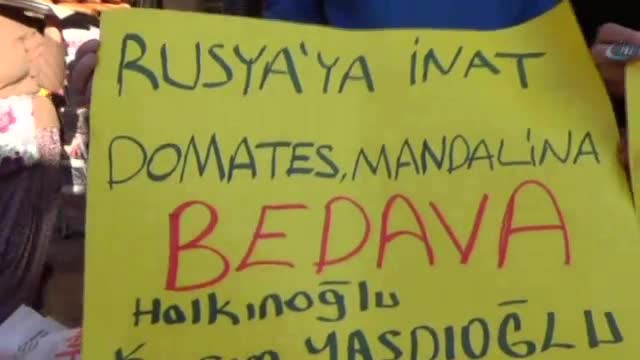 RUSYA'YA İNAT
DOMATES, MANDALİNA
BEDAVA
Halkınoğlu
YAŞDIOĞLU